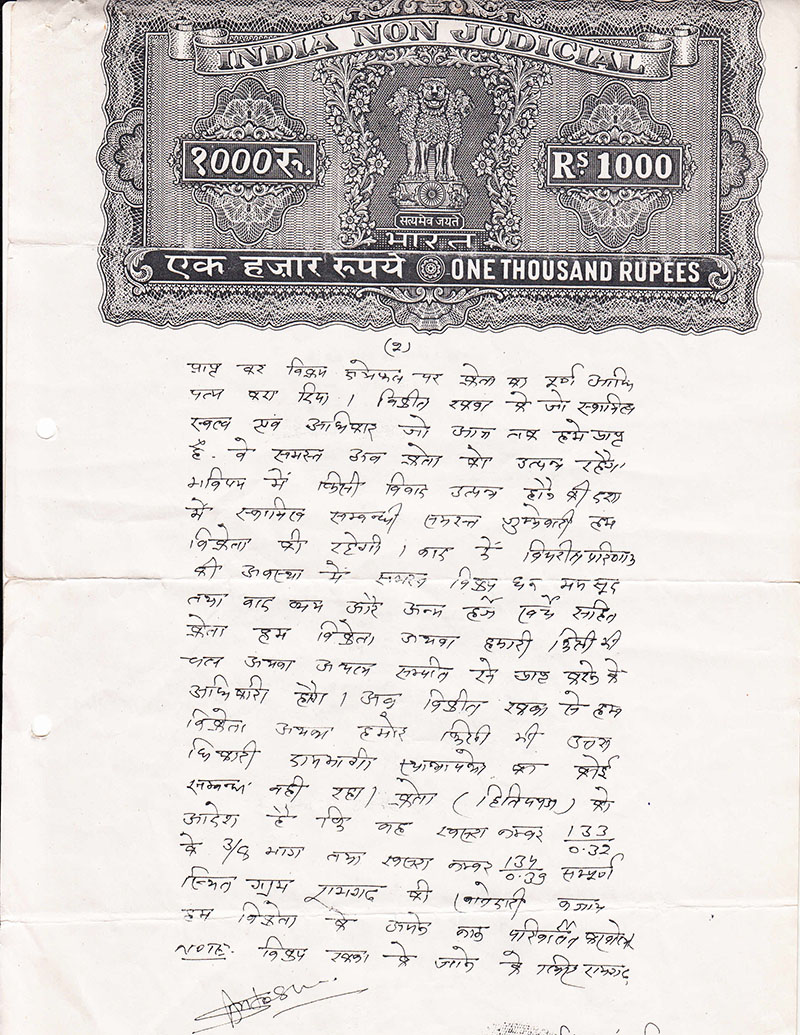 INDIA NON JUDICIAL
१००० रु. Rs 1000
सत्यमेव जयते
भारत
एक हज़ार रुपये ONE THOUSAND RUPEES
(२)
प्राप्त कर विक्रय क्षेत्रफल पर क्रेता का पूर्ण आधि
पत्य करा दिया। विक्रीत रकबा के जो स्वामित्व
स्वत्व एवं अधिकार जो आज तक हमे प्राप्त
है. वे समस्त अब क्रेता को उत्पन्न रहेंगे।
भविष्य में किसी विवाद उत्पन्न होने की दशा
में स्वामित्व सम्बन्धी समस्त जुम्मेवारी हम
विक्रेता की रहेगी। वाद में विपरीत परिणाम
की अवस्था में समस्त विक्रय धन मय सूद
तथा वाद व्यय और अन्य हर्जे खर्चे सहित
क्रेता हम विक्रेता अथवा हमारी किसी भी
चल अथवा अचल सम्पत्ति से प्राप्त करने के
अधिकारी होंगे। अब विक्रीत रकबा से हम
विक्रेता अथवा हमारे किसी भी उत्तरा
धिकारी दायभागी स्थानापन्नो का कोई
सम्बन्ध नही रहा। क्रेता ( ) को
आदेश है कि वह खसरा नम्बर 133/0.32
के 3/8 भाग तथा खसरा नम्बर 134/0.39 सम्पूर्ण
स्थित ग्राम रामगढ़ की खातेदारी बजाय
हम विक्रेता के अपने नाम परिवर्तन करालें।
NOTE: विक्रय रकबा के जाने के लिए रामगढ़